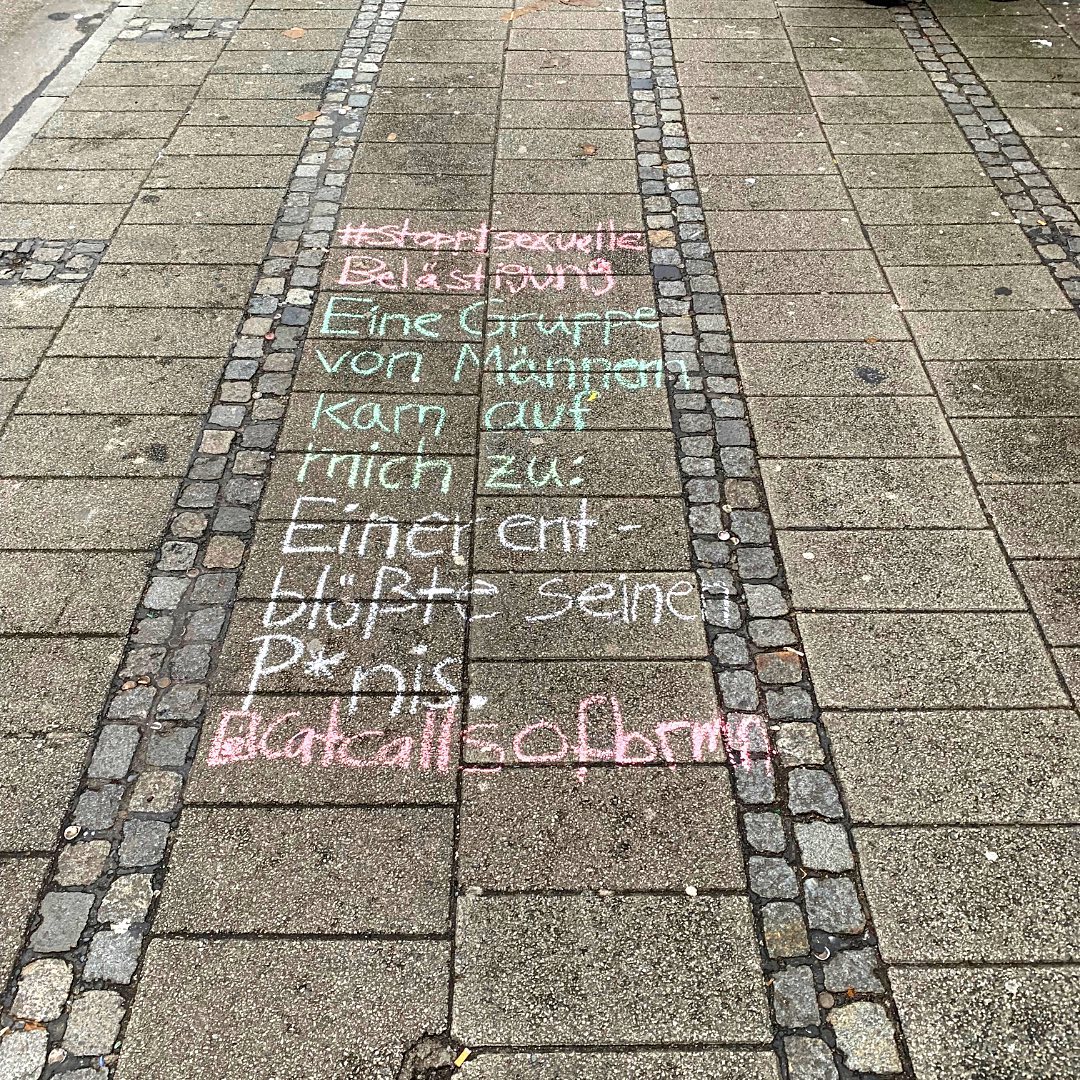 #Stoppt sexuelle
Belästigung
Eine Gruppe
von Männern
kam auf
mich zu:
Einer ent-
blößte seinen
P*nis.
@catcallsofbrmn